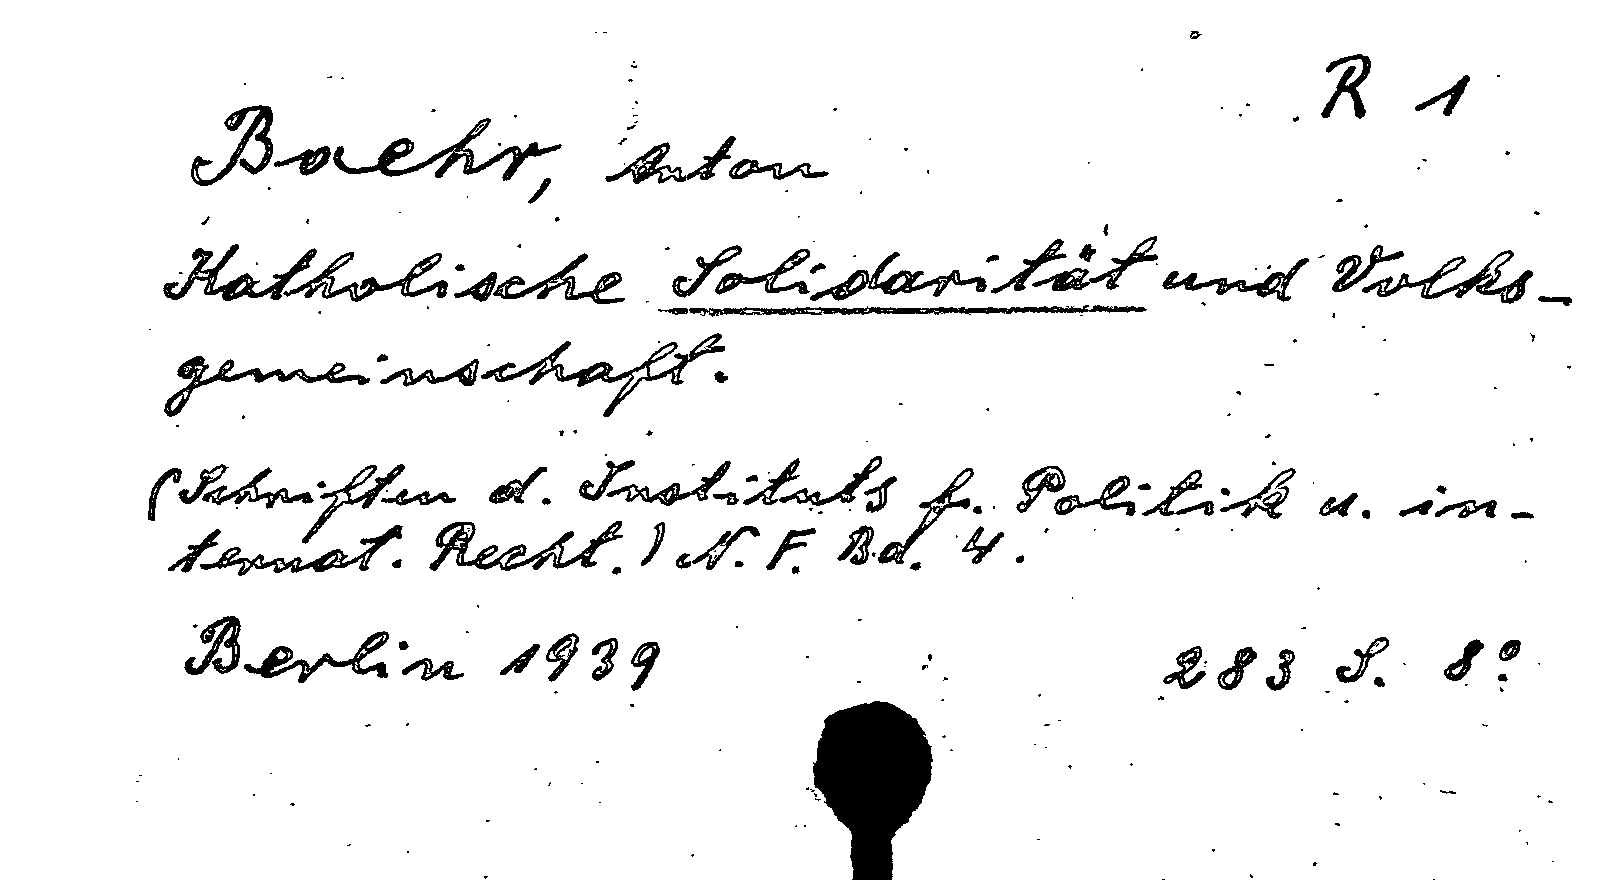 R 1
Baehr, Anton
Katholische Solidarität und Volks-
gemeinschaft.
(Schriften d. Instituts f. Politik u. in-
ternat. Recht.) N. F. Bd. 4.
Berlin 1939 283 S. 8°